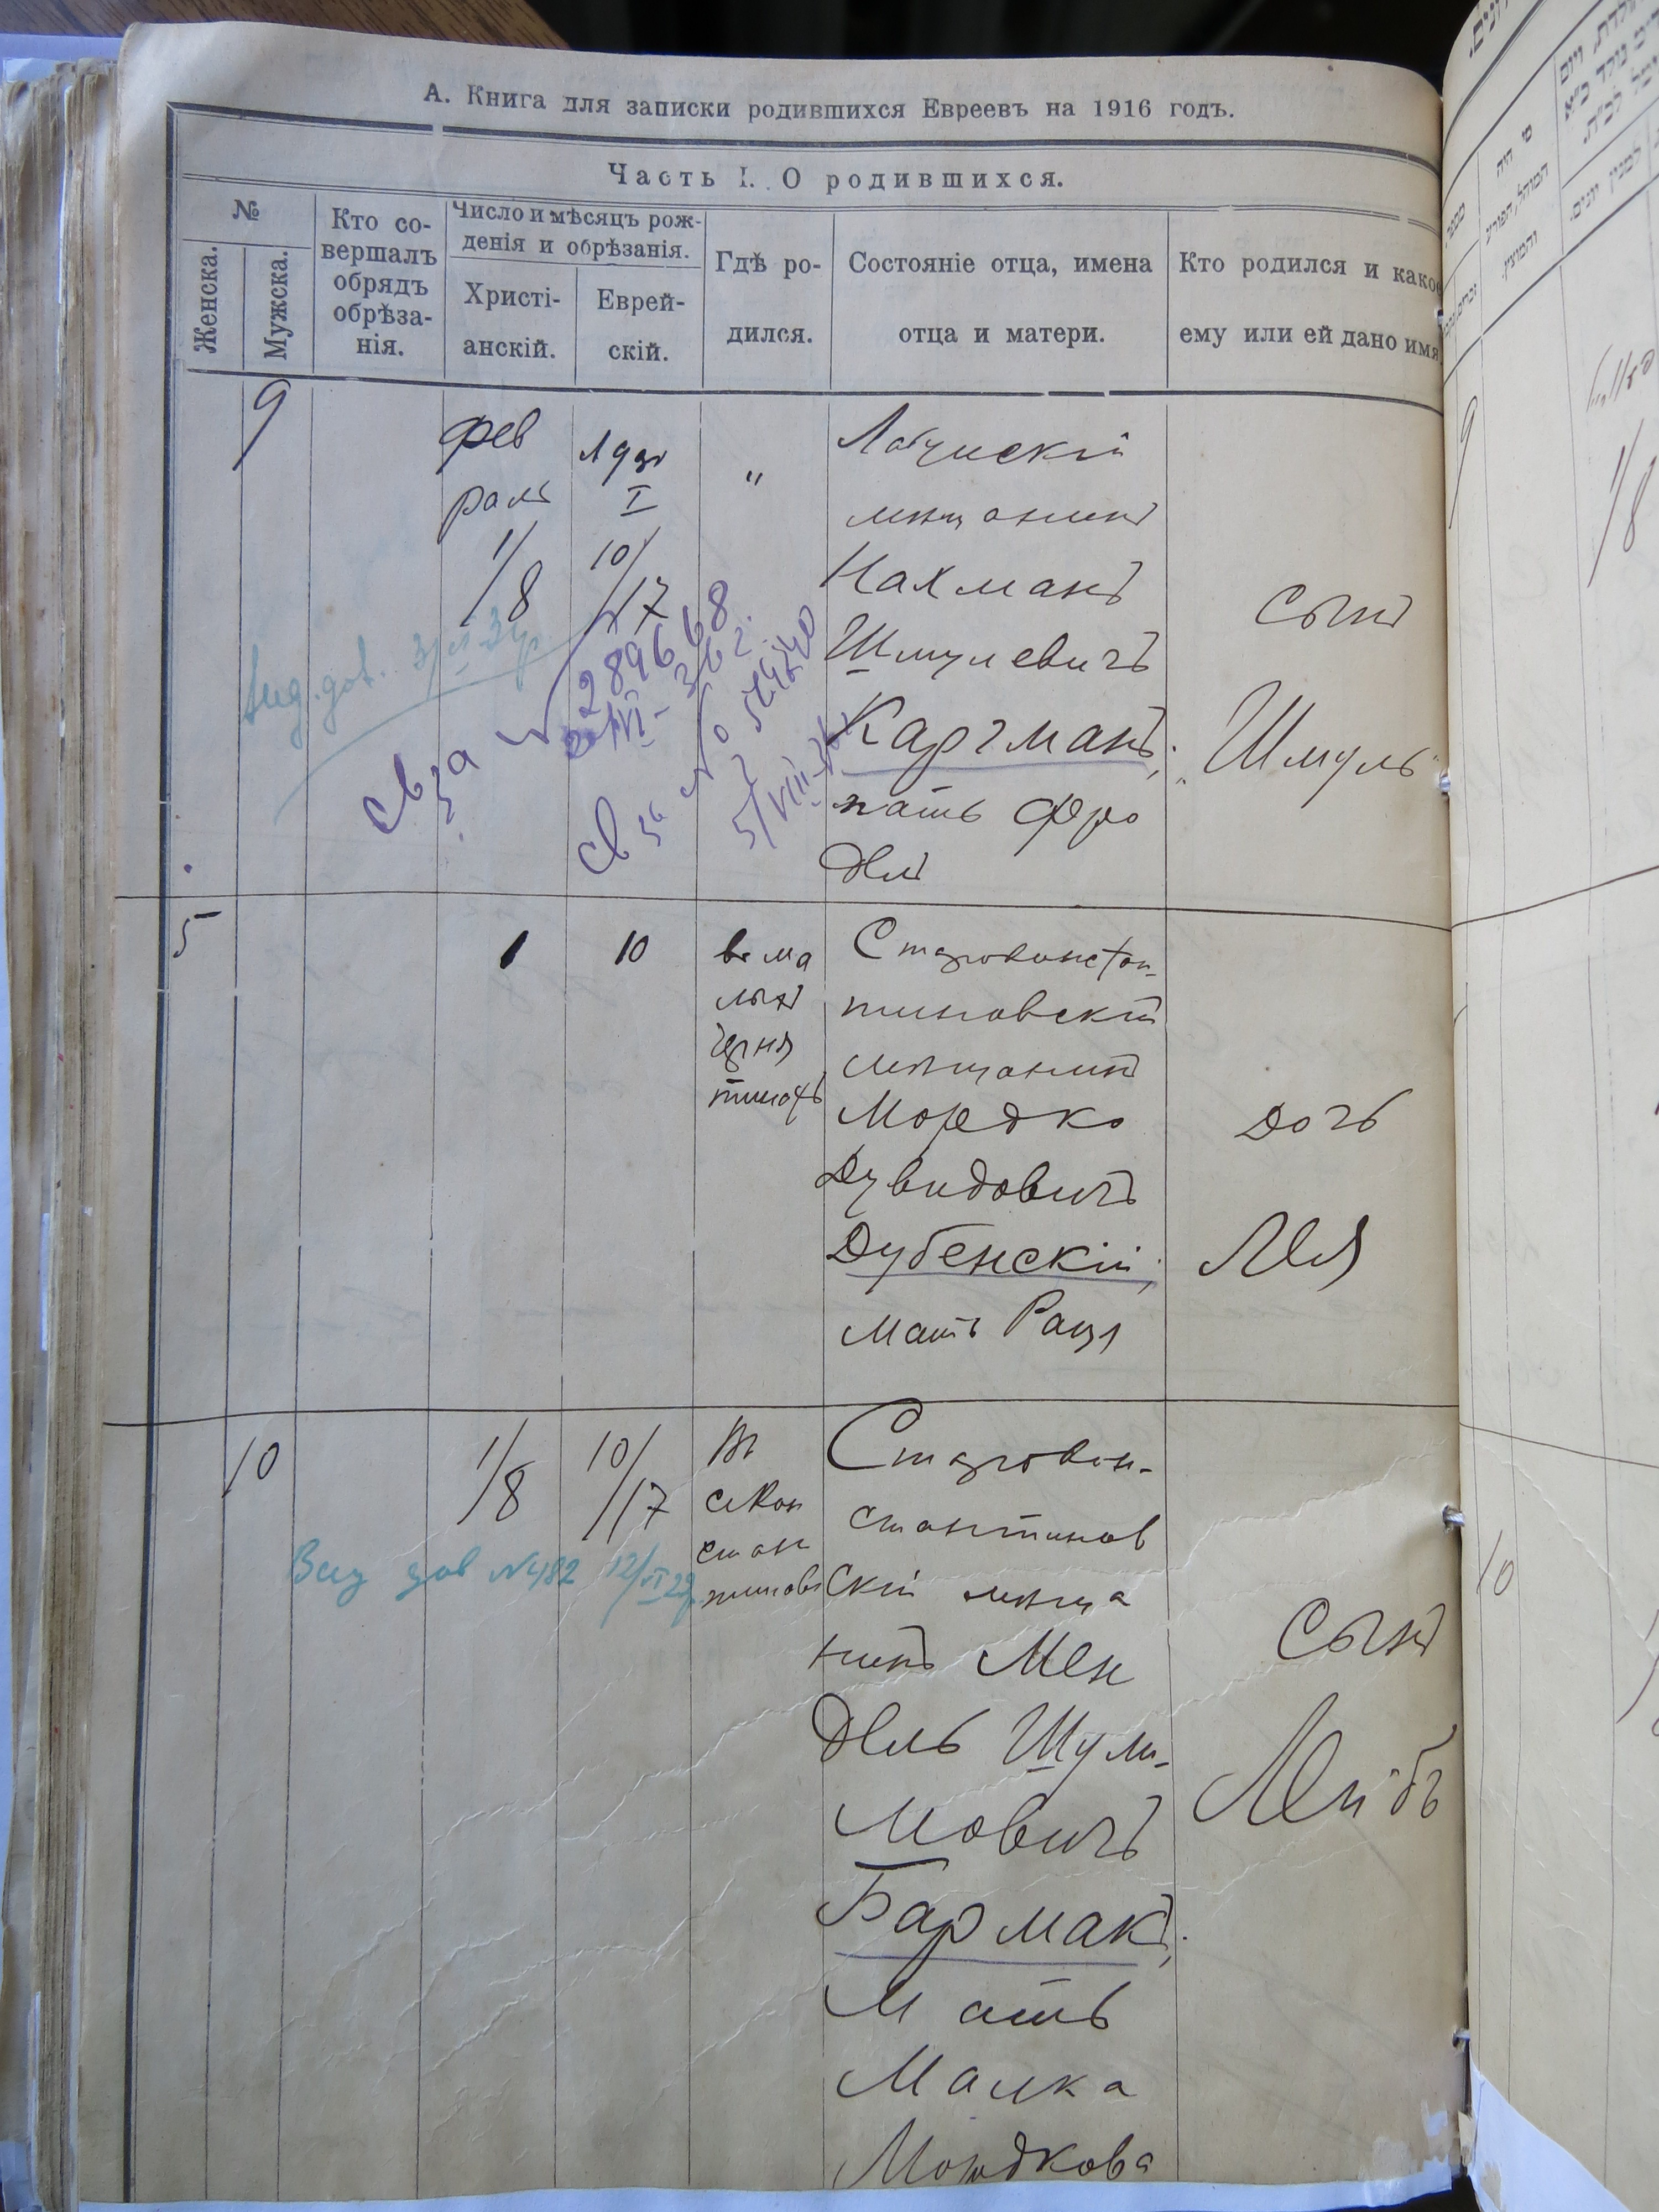 А. Книга для записки родившихся Евреевъ на 1916 годъ.
Часть I. О родившихся.
№
Женска.
Мужска.
Кто со-
вершалъ
обрядъ
обрѣза-
нія.
Число и мѣсяцъ рож-
денія и обрѣзанія.
Христі-
анскій.
Еврей-
скій.
Гдѣ ро-
дился.
Состояніе отца, имена
отца и матери.
Кто родился и какое
ему или ей дано имя
9
фев
раль
1/8
Адаръ
I
10/17
"
мѣщанинъ
Нахманъ
Шмулевичъ
Каргманъ,
мать Фро
сынъ
"Шмуль"
Св за № 289668
Св за № 0
5
1
10
Староконстан-
тиновскій
мѣщанинъ
Мордко
Дувидовичъ
Дубенскій,
мать Рахля
дочь
Лея
10
1/8
10/17
Въ
с. Кон
стан
тиновѣ
Старокон-
стантинов
скій мѣща
нинъ Мен
дель Шули-
мовичъ
Бармакъ,
Мать
Малка
Мордкова
сынъ
Лейбъ
Выд дов №482 12/VI 29
9
1/8
10